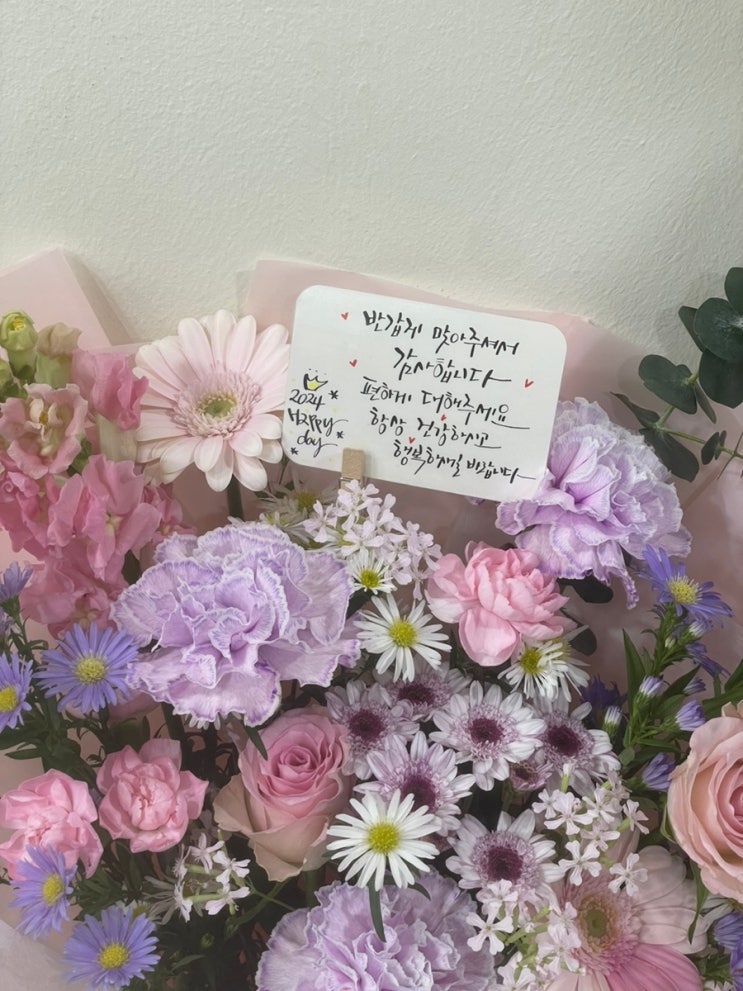 반갑게 맞아주셔서
감사합니다
편하게 대해주세요
항상 건강하시고
행복하시길 바랍니다
2024
Happy
day